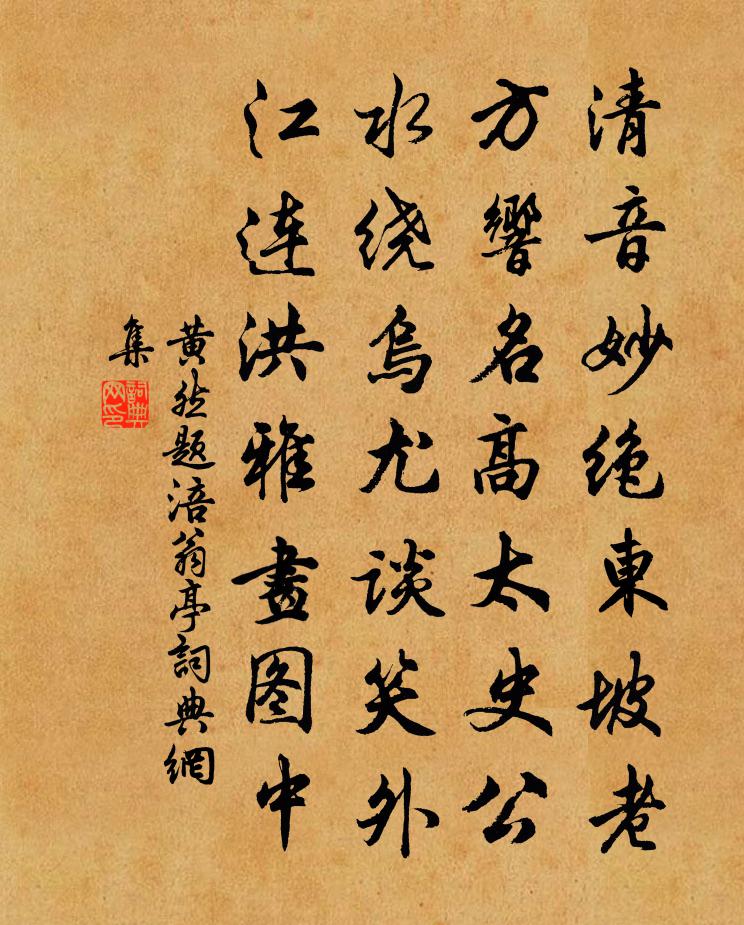 清音妙绝東坡老
方響名高太史公
水绕乌尤谈笑外
江连洪雅畫图中
黄然题涪翁亭詞典網
集
詞典
网印